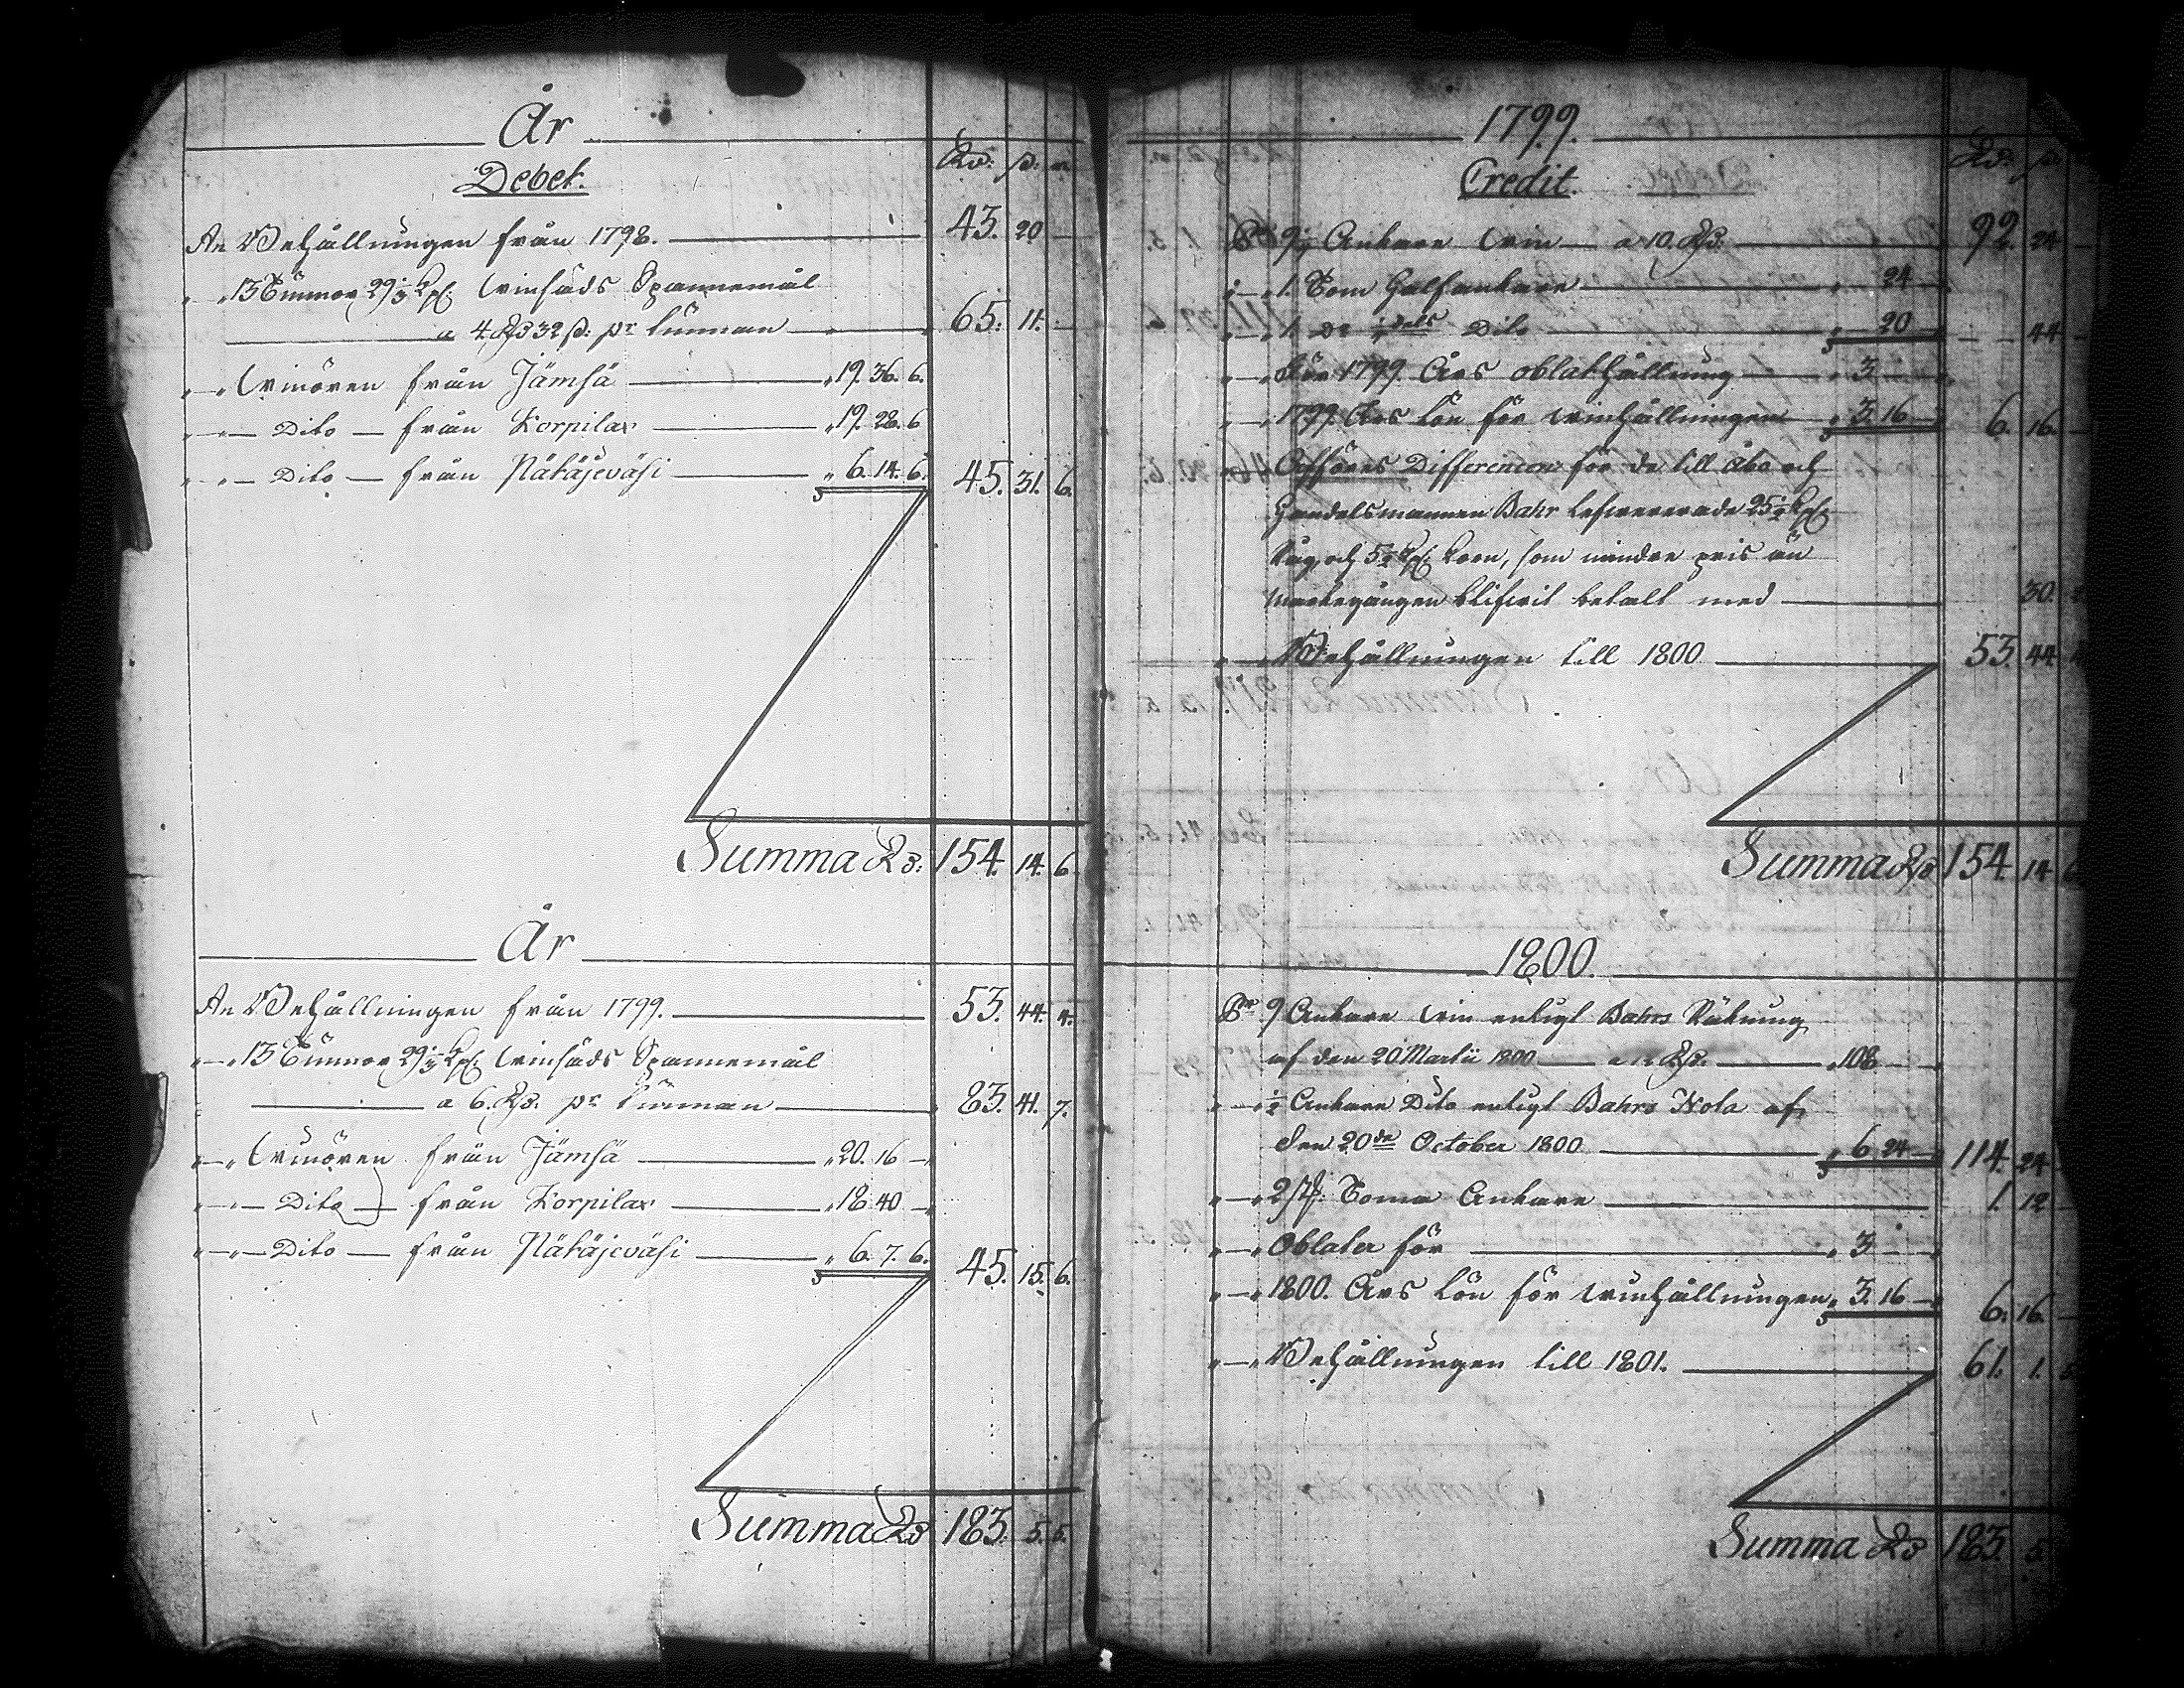 År
Debet.
Rd: ß: rs
An Behållningen från 1798. 43. 20
" " 13 Tunnor 29⅓ Kpr Winsäds Spannemål
a 4 Rd 32 ß: pr tunnan 65. 11.
" " Winören från Jämsä " 19. 36. 6.
" " Dito från Korpilax " 19. 28. 6
" " Dito från Pätäjeväsi " 6. 14. 6. 45. 31. 6.
Summa Rd: 154. 14. 6
År
An Behållningen från 1799. 53. 44. 4.
" " 13 Tunnor 29⅓ Kpr Winsäds Spannemål
a 6. Rd: pr tunnan 83. 41. 7.
" " Winören från Jämsä " 20. 16
" " Dito från Korpilax " 18. 40
" " Dito från Pätäjeväsi " 6. 7. 6. 45. 15. 6.
Summa Rd 183. 5. 5.
1799.
Credit.
Rd: ß:
Pr 9¼ Ankare Win a 10. Rd: 92. 24
" " 1. Tom Halfankare " 24
" " 1. De dels Dito " 20 44
" " För 1799 Års oblathållning " 3
" " 1799 Års Lön för winhållningen " 3. 16 6. 16.
" " Afföres Differencen för de till Åbo och
Handelsmannen Bahr lefwererade 25½ Kpr
Råg och 5½ Kpr Korn, som mindre pris än
Markegången blifwit betalt med 30.
" " Behållningen till 1800 53. 44
Summa Rd 154. 14 6
1800.
Pr 9 Ankare Win enligt Bahrs Räkning
af den 20 Martii 1800 a 12 Rd: " 108
" " ½ Ankare Dito enligt Bahrs Nota af
den 20de October 1800 " 6 24 114. 24
" " 2 st: Toma Ankare 1. 12
" " Oblater för " 3
" " 1800. Års Lön för winhållningen " 3. 16 6. 16.
" " Behållningen till 1801. 61. 1.
Summa Rd 183. 5